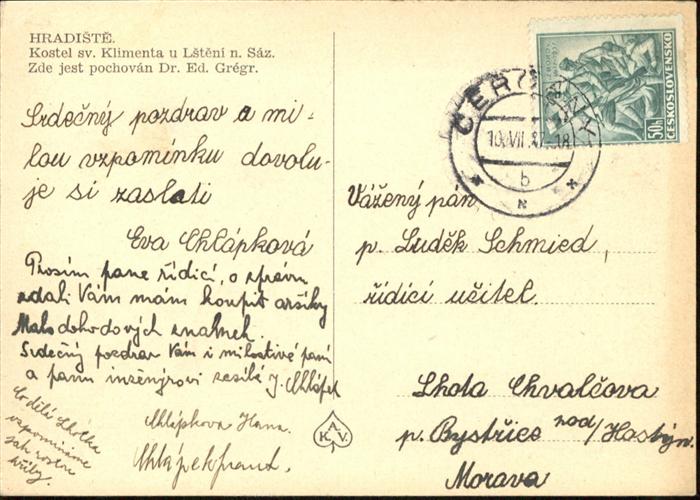 HRADIŠTĚ.
Kostel sv. Klimenta u Lštění n. Sáz.
Zde jest pochován Dr. Ed. Grégr.
Srdečný pozdrav a mi-
lou vzpomínku dovolu-
je si zaslati
Eva Chlápková
Prosím pane řídící, o zprávu
zdali Vám mám koupit aršíky
Malodohodových známek.
Srdečný pozdrav Vám i milostivé paní
a panu inženýrovi zasílá J. Chlápek
Co dělá Lhotka
vzpomínáme
jak rostou
Chlápkova Hana.
Chlápek
K.A.V.
50h
ČESKOSLOVENSKO
ČERČANY
10.VII.37.-18
b
Vážený pán
p. Luděk Schmied,
řídící učitel.
Lhota Chvalčova
p. Bystřice nad/Host
Morava